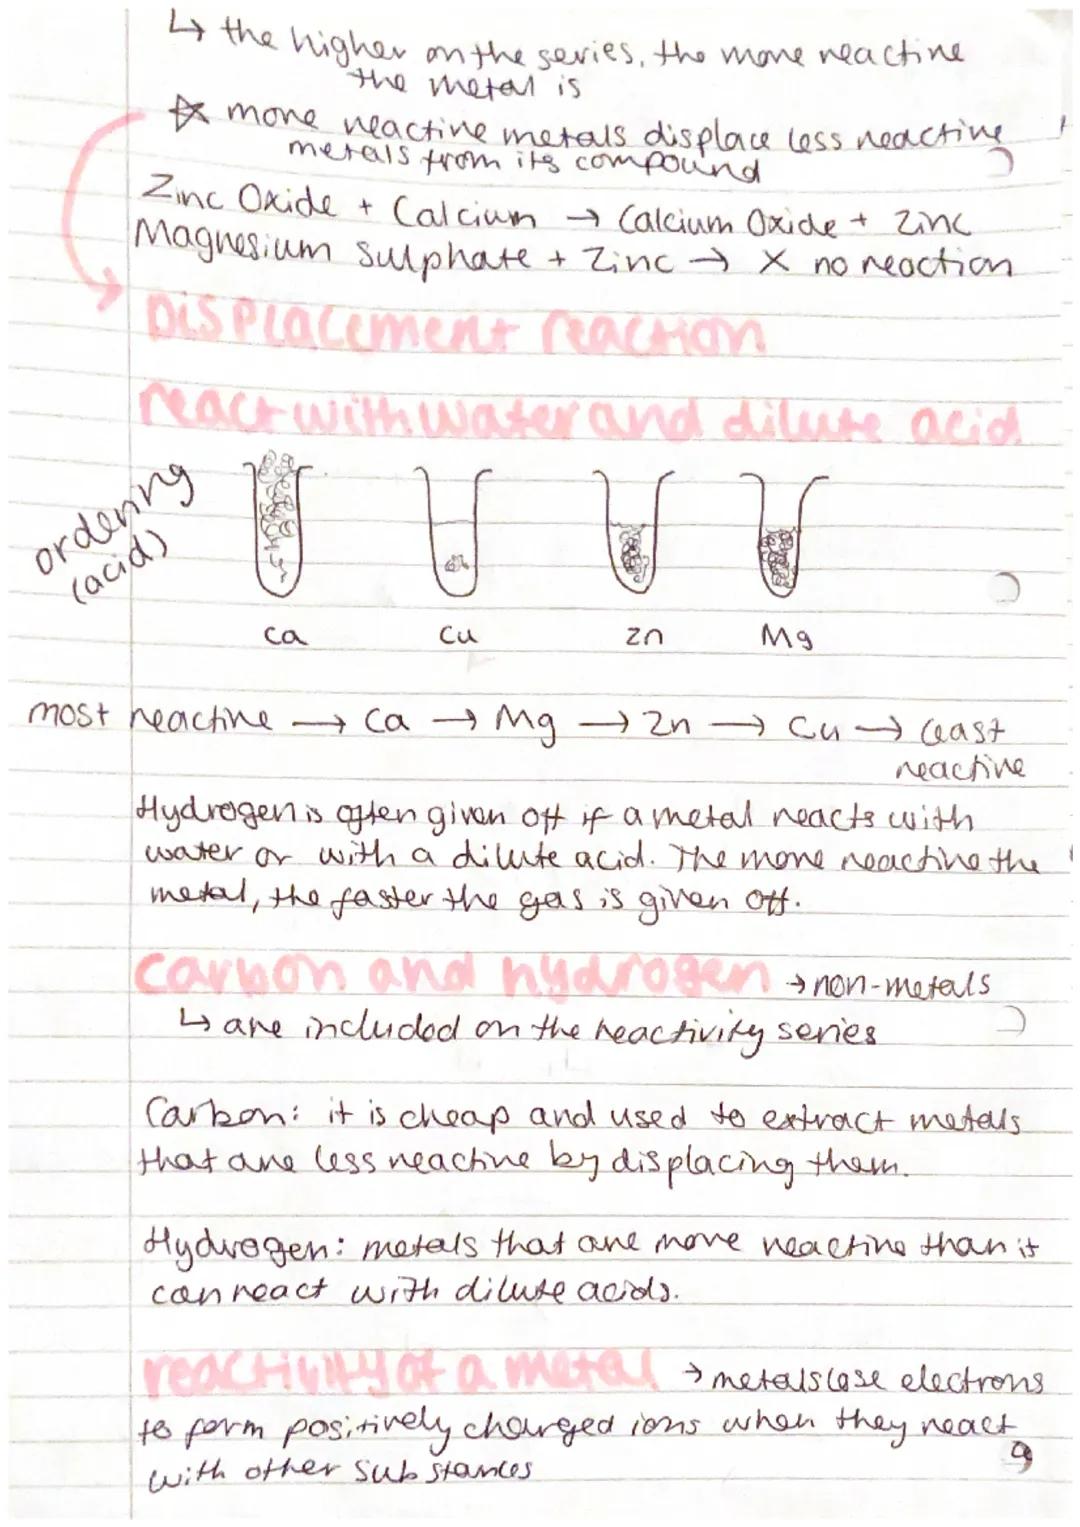 ↳ the higher on the series, the more reactive
the metal is
☆ more reactive metals displace less reactive
metals from its compound
Zinc Oxide + Calcium → Calcium Oxide + Zinc
Magnesium Sulphate + Zinc → X no reaction
Displacement reaction
react with water and dilute acid
ordering
(acid)
Ca Cu Zn Mg
most reactive → Ca → Mg → Zn → Cu → least
reactive
Hydrogen is often given off if a metal reacts with
water or with a dilute acid. The more reactive the
metal, the faster the gas is given off.
Carbon and hydrogen → non-metals
↳ are included on the reactivity series
Carbon: it is cheap and used to extract metals
that are less reactive by displacing them.
Hydrogen: metals that are more reactive than it
can react with dilute acids.
reactivity of a metal → metals lose electrons
to form positively charged ions when they react
with other substances
9